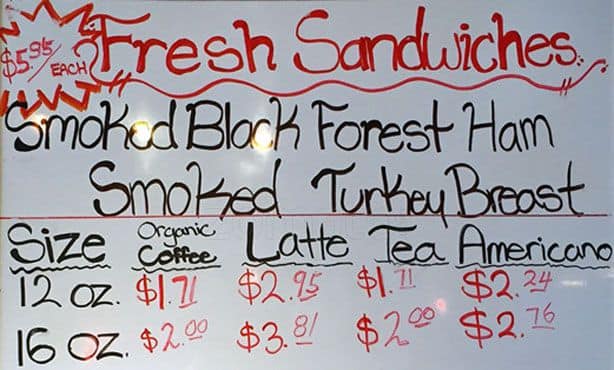 $5.95/EACH
Fresh Sandwiches
Smoked Black Forest Ham
Smoked Turkey Breast
Size Organic Coffee Latte Tea Americano
12 oz. $1.71 $2.95 $1.71 $2.24
16 oz. $2.00 $3.81 $2.00 $2.76